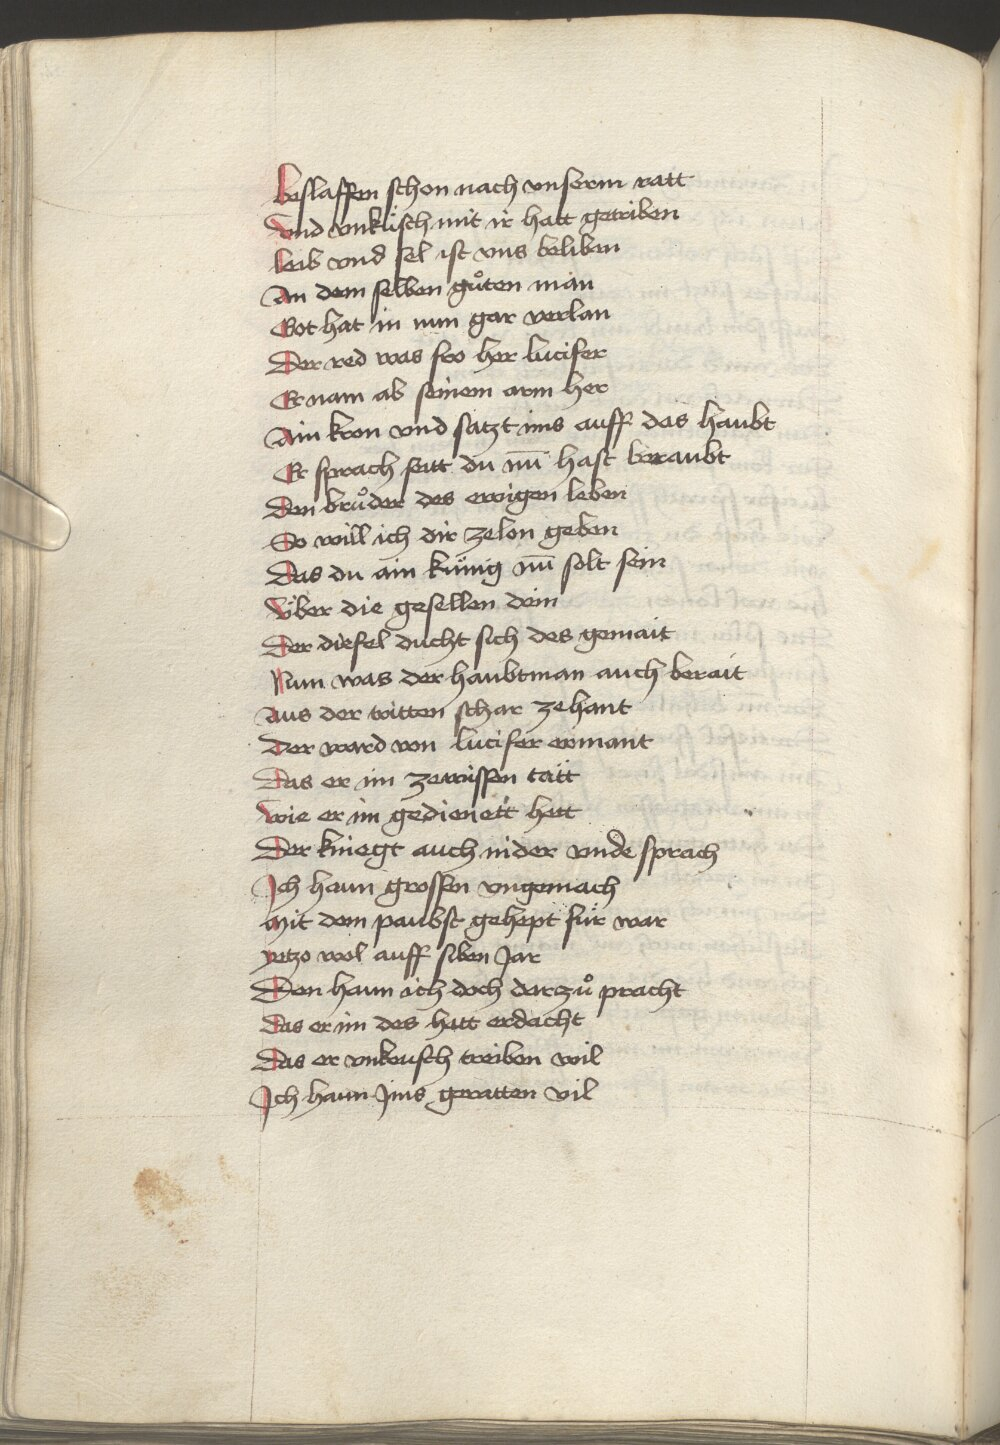 beslaffen schon nach vnserm ratt
Vnd vnküsch mit ir hatt getriben
leib vnd sel ist vns beliben
An dem selben gůten man
Got hat in nun gar verlan
Der red was fro her lucifer
Er nam ab seinem arm her
Ain kron vnd satzt ims auff das haubt
Er sprach seitt du nun̄ hast beraubt
Den brůder des ewigen leben
So will ich dir zelon geben
Das du ain künig nun̄ solt sein
Vber die gesellen dein
Der diefel ducht sich des gemait
Nun was der haubtman auch berait
Aus der tritten schar zehant
Der ward von lucifer ermant
Das er im zewissen tätt
Wie er im gedienett hett
Der kniegt auch nider vnde sprach
Ich haun grossen vngemach
Mit dem paubst gehept für war
yetzo wol auff siben Jar
Den haun ich doch darzů pracht
Das er im des hatt erdacht
Das er vnkeusch treiben wil
Ich haun Jms geratten vil